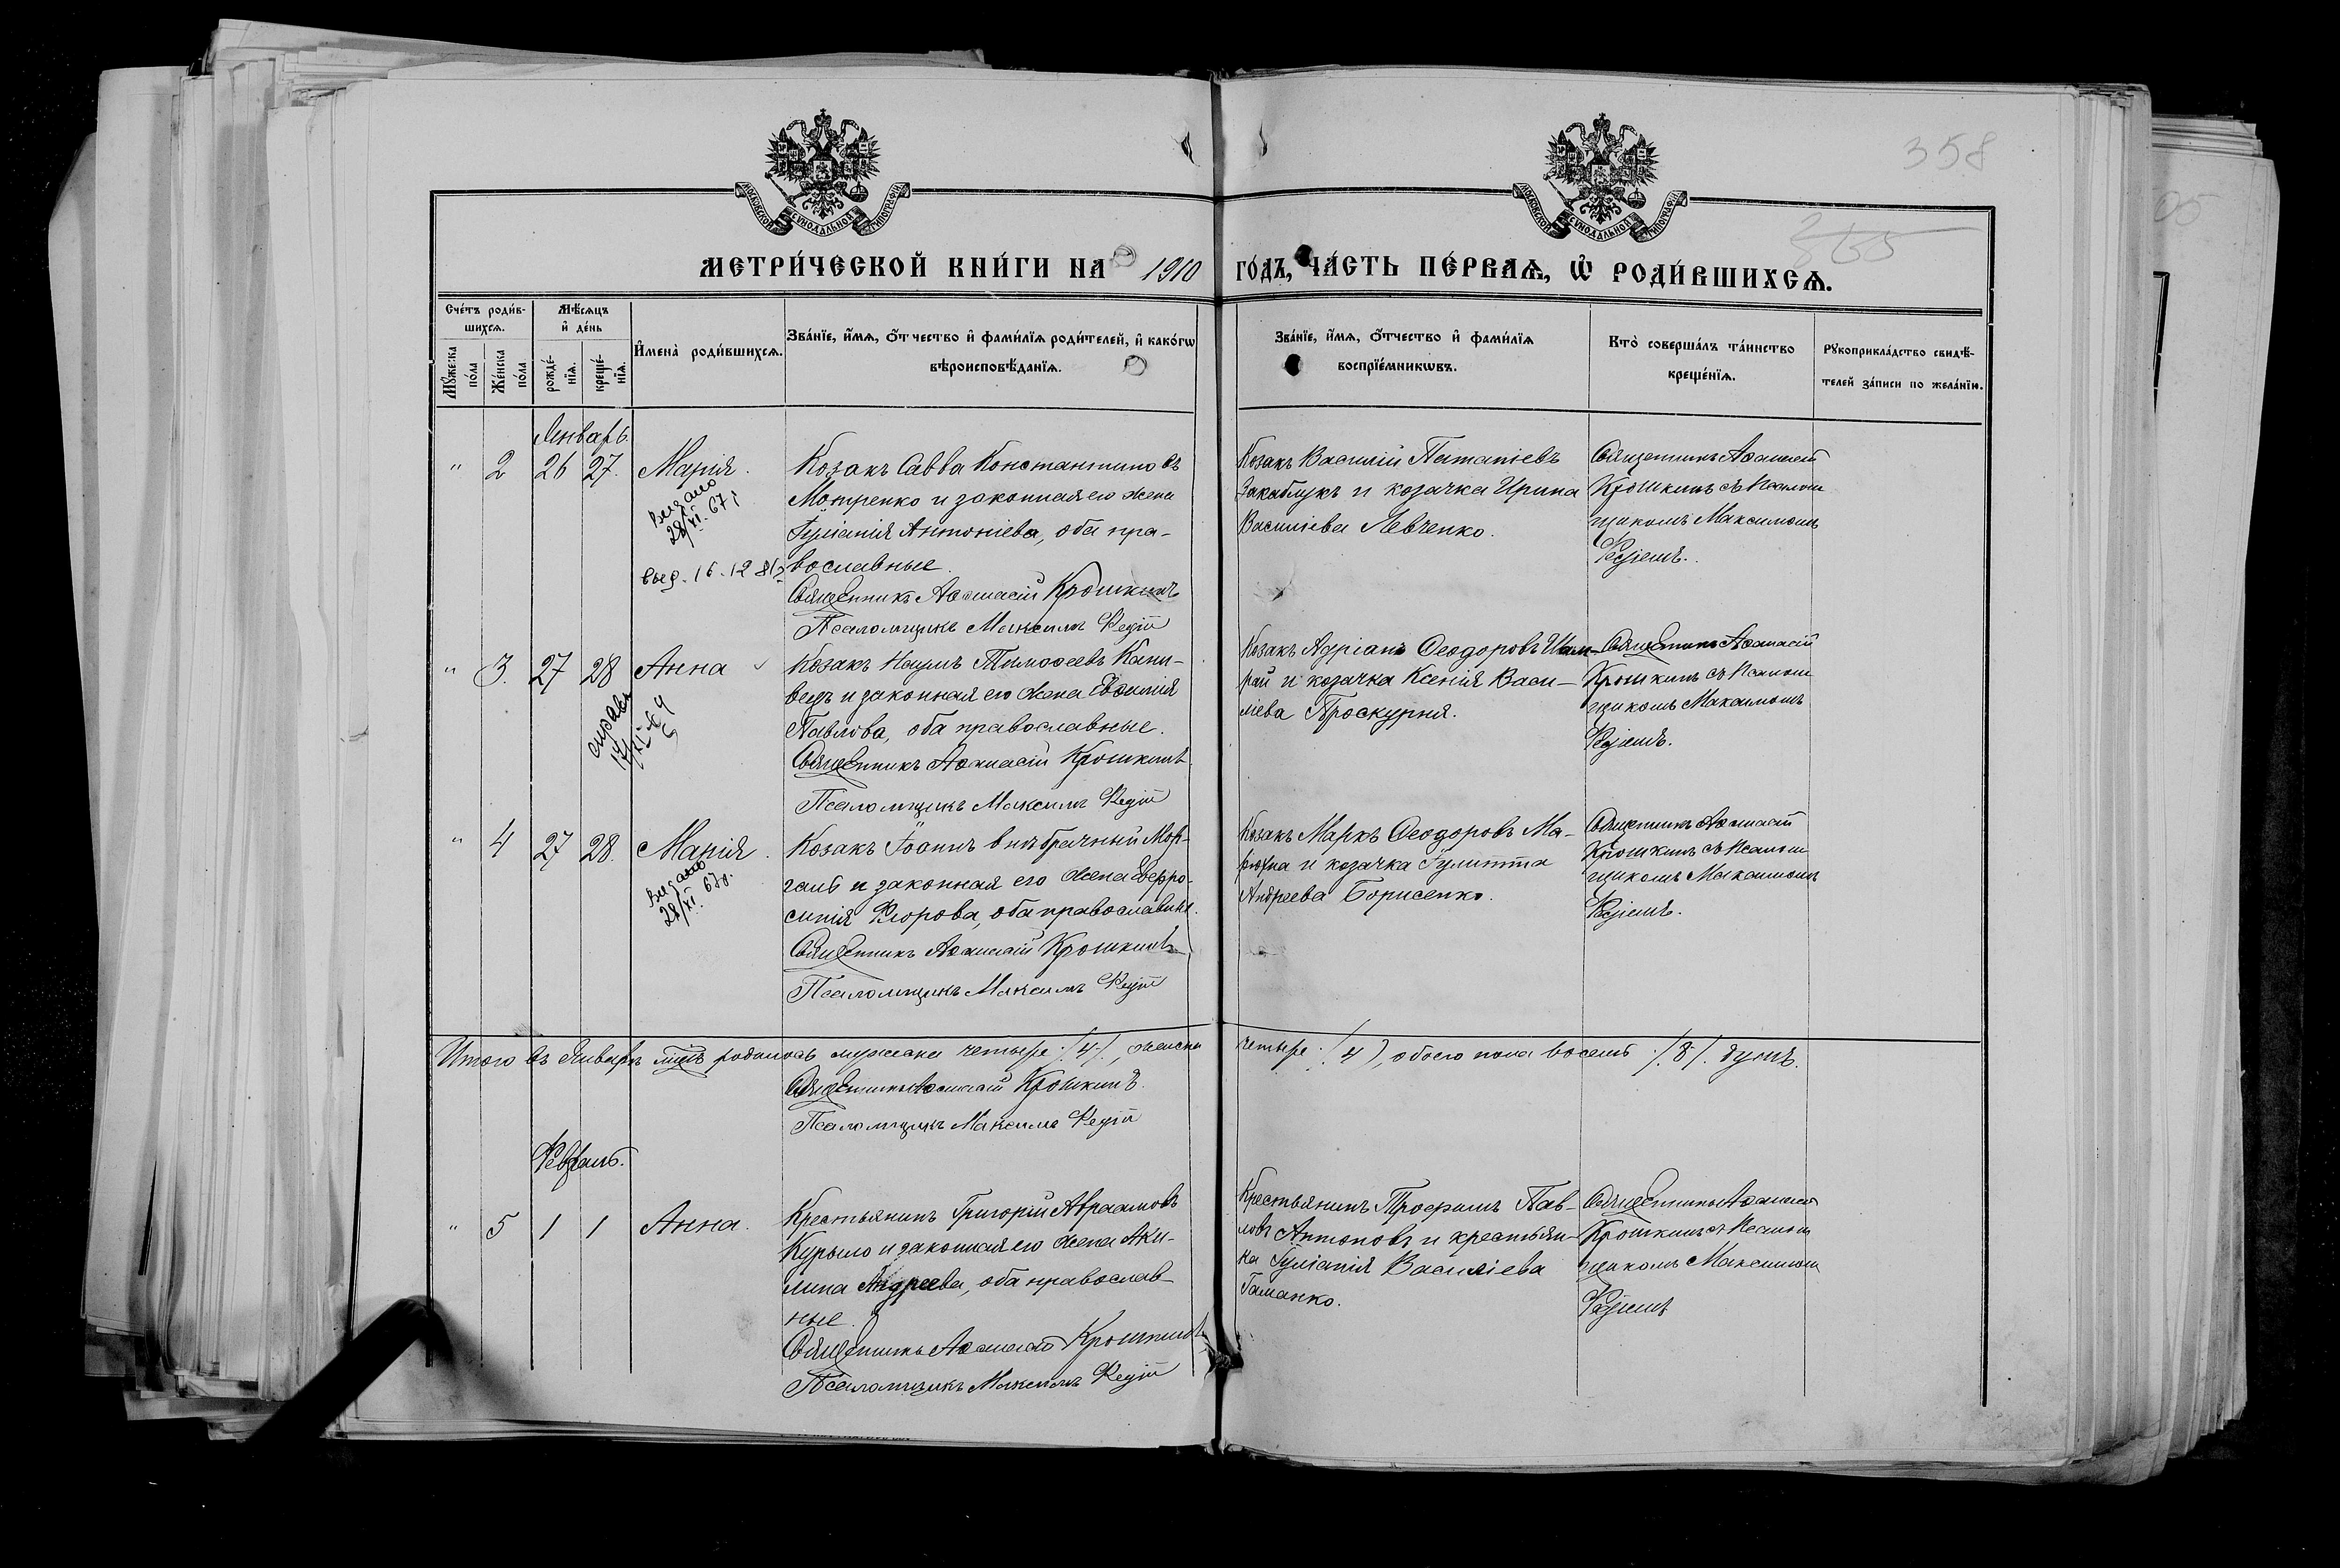 358
355
МОСКОВСКОЙ СѴНОДАЛЬНОЙ ТИПОГРАФІИ
МОСКОВСКОЙ СѴНОДАЛЬНОЙ ТИПОГРАФІИ
МЕТРИ́ЧЕСКОЙ КНИ́ГИ НА 1910 ГО́ДЪ, ЧА́СТЬ ПЕ́РВАѦ, Ѡ҆ РОДИ́ВШИХСѦ.
Сче́тъ роди́в-
шихсѧ.
Мꙋ́жеска по́ла
Же́нска по́ла
Мѣ́сѧцъ и҆ де́нь
рожде́-
нїѧ.
креще́-
нїѧ.
И҆мена̀ роди́вшихсѧ.
Зва́нїе, и҆́мѧ, ѻ҆́тчество и҆ фами́лїѧ роди́телей, и҆ како́гѡ
вѣроисповѣ́данїѧ.
Зва́нїе, и҆́мѧ, ѻ҆́тчество и҆ фами́лїѧ
воспрїе́мникѡвъ.
Кто̀ соверша́лъ та́инство
креще́нїѧ.
Рꙋкоприкла́дство свидѣ́-
телей за́писи по жела́нїю.
Январь.
" 2 26 27. Марія.
Видано
28/XI. 67
выд. 16.12 81
Козакъ Савва Константиновъ
Мотренко и законная его жена
Іуліанія Антоніева, оба пра-
вославные.
Священникъ Аѳанасій Крошкинъ
Псаломщикъ Максимъ Редій
Козакъ Василій Потапіевъ
Закаблукъ и козачка Ирина
Василіева Левченко.
Священникъ Аѳанасій
Крошкинъ съ псалом
щикомъ Максимомъ
Редіемъ.
" 3. 27 28 Анна
справка
17/XI-64
Козакъ Наумъ Тимоѳеевъ Кани-
вець и законная его жена Евѳимія
Павлова, оба православные.
Священникъ Аѳанасій Крошкинъ
Псаломщикъ Максимъ Редій
Козакъ Адріанъ Ѳеодоровъ Шам-
рай и козачка Ксенія Васи-
ліева Проскурня.
Священникъ Аѳанасій
Крошкинъ съ псалом
щикомъ Максимомъ
Редіемъ.
" 4 27 28. Марія.
Видано
28/XI. 67
Козакъ Іоаннъ внѣбрачный Мор-
галь и законная его жена Евфро-
синія Егорова, оба православные.
Священникъ Аѳанасій Крошкинъ
Псаломщикъ Максимъ Редій
Козакъ Маркъ Ѳеодоровъ Ма-
рюхна и козачка Іулитта
Андреева Борисенко.
Священникъ Аѳанасій
Крошкинъ съ псалом
щикомъ Максимомъ
Редіемъ.
Итого въ Январѣ мцѣ родилось мужска четыре /4/, женска четыре /4/, обоего пола восемь /8/ душъ.
Священникъ Аѳанасій Крошкинъ.
Псаломщикъ Максимъ Редій
Февраль.
" 5 1 1 Анна.
Крестьянинъ Григорій Авраамовъ
Курыло и законная его жена Аки-
лина Андреева, оба православ-
ные.
Священникъ Аѳанасій Крошкинъ
Псаломщикъ Максимъ Редій
Крестьянинъ Трофимъ Пав-
ловъ Антоновъ и крестьян-
ка Іуліанія Василіева
Гаманко.
Священникъ Аѳанасій
Крошкинъ съ псалом
щикомъ Максимомъ
Редіемъ